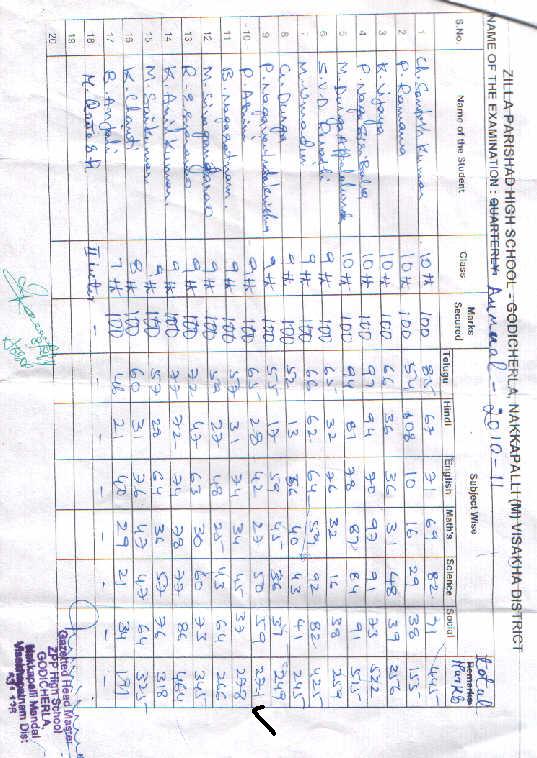 ZILLA PARISHAD HIGH SCHOOL - GODICHERLA, NAKKAPALLI (M) VISAKHA DISTRICT
NAME OF THE EXAMINATION : QUARTERLY Annual - 2010-11
S.No. Name of the Student Class Marks Secured Subject Wise Total Marks
Telugu Hindi English Math's Science Social Remarks
1 Ch. Santosh Kumar 10th 100 85 67 71 69 82 71 445
2 P. Ramana 10th 100 54 08 10 16 29 38 155
3 K. Vijaya 10th 100 66 36 36 31 48 39 256
4 P. Naga Sen Babu 10th 100 97 94 90 97 91 73 522
5 10th 100 94 81 78 87 84 91 515
6 S.V.D. 9th 100 65 32 76 32 16 38 259
7 M. Umadevi 9th 100 66 62 64 59 92 82 425
8 G. Durga 9th 100 52 13 56 40 43 41 245
9 9th 100 55 17 59 45 36 37 249
10 9th 100 65 28 42 27 50 59 271
11 B. Nagaratnam 9th 100 57 31 74 34 45 37 278
12 9th 100 59 27 48 25 43 64 266
13 9th 100 77 47 63 30 60 73 345
14 K. Anil Kumar 9th 100 77 72 74 78 77 86 464
15 M. Sai Kumari 9th 100 57 28 64 36 57 76 318
16 K. Chanti 8th 100 60 31 76 47 47 64 325
17 B. Anjali 7th 100 46 21 40 29 21 34 191
18 II inter - - - - - - -
19
20
Gazetted Head Master
ZPP High School
GODICHERLA,
Nakkapalli Mandal
Visakhapatnam Dist: